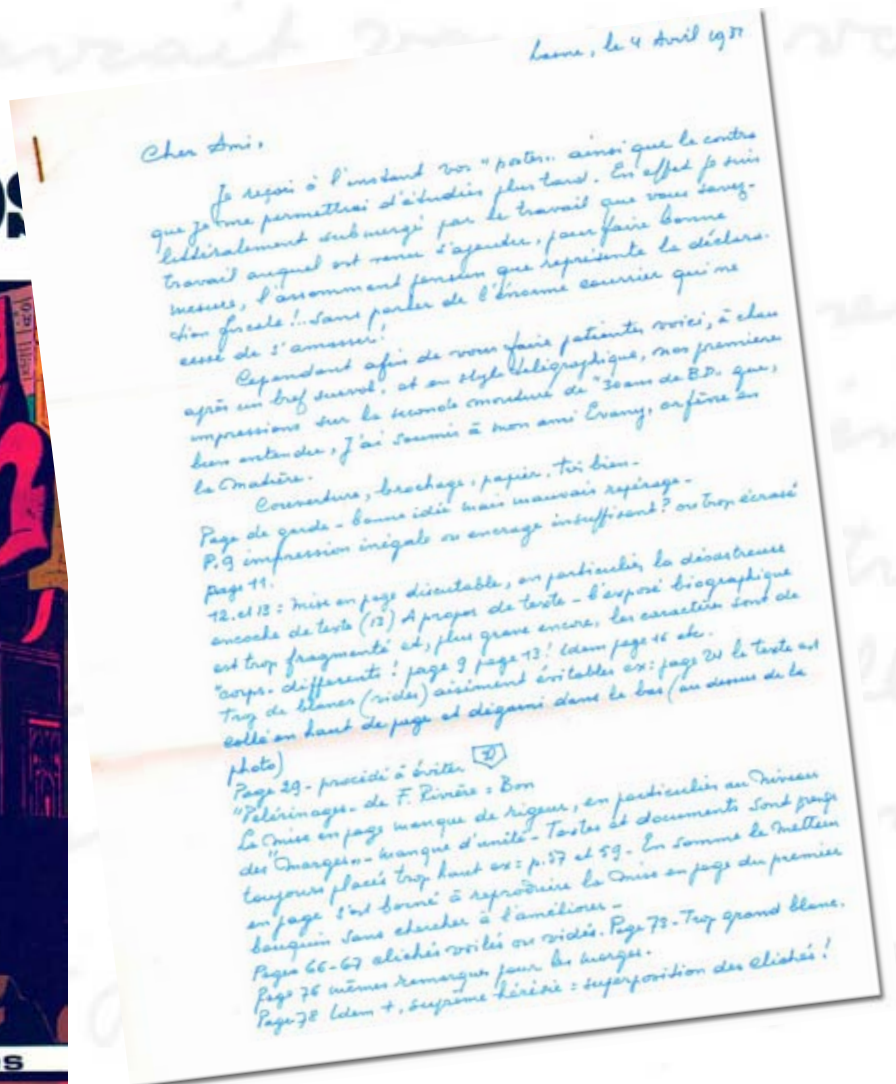 Lasne, le 4 Avril 19
Cher Ami,
Je reçoi à l'instant vos "postes" ainsi que le contra
que je me permettrai d'étudier plus tard. En effet je suis
littéralement submergé par le travail que vous savez-
travail auquel est venu s'ajouter, pour faire bonne
mesure, l'assommant pensum que représente la déclara-
tion fiscale!.. Sans parler de l'énorme courrier qui ne
cesse de s'amasser!
Cependant afin de vous faire patienter voici, à chau
après un bref survol, et en style télégraphique, nos premieres
impressions sur la seconde mouture de "30 ans de B.D." que,
bien entendu, J'ai soumis à mon ami Evany, orfèvre en
la Matière.
Couverture, brochage, papier, très bien-
Page de garde - bonne idée mais mauvais repérage-
P.9 impression inégale ou encrage insuffisant? ou trop écrasé
page 11.
12. et 13: Mise en page discutable, en particulier la désastreuse
encoche de texte (12) A propos de texte - l'exposé biographique
est trop fragmenté et, plus grave encore, les caractères sont de
"corps" différents! page 9 page 13! Idem page 16 etc.
Trop de blancs (vides) aisément évitables ex: page 20 le texte est
collé en haut de page et dégarni dans le bas (au dessus de la
photo)
Page 29- procédé à éviter
"Pélérinages" de F. Rivière = Bon
La Mise en page manque de rigeur, en particulier au Niveau
des "Marges" - manque d'unité - Textes et documents sont presqe
toujours placés trop haut ex: p.57 et 59- En somme le Metteur
en page s'est borné à reproduire la Mise en page du premier
bouquin sans chercher à l'améliorer-
Pages 66-67 clichés voilés ou vidés. Page 73- Trop grand blanc.
Page 76 mêmes remarques pour les marges.
Page 78 Idem +, suprême hérésie = superposition des clichés!